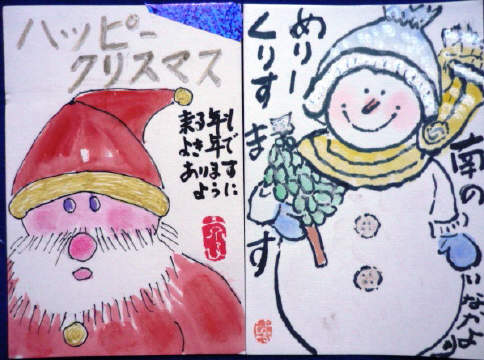 ハッピー
クリスマス
来る年も
よき年で
あります
ように
めりー
くりすます
南の
いなかより